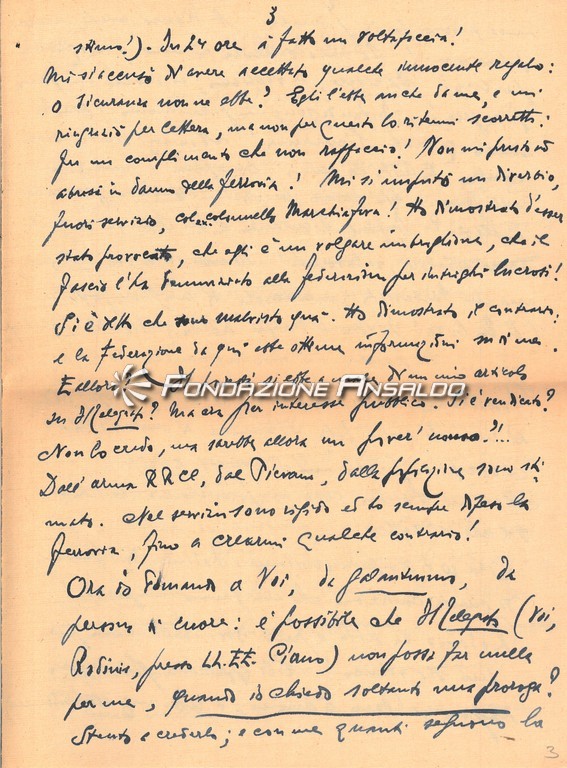 3
stimo!). In 24 ore à fatto un voltafaccia!
Mi si accusò d'avere accettato qualche innocente regalo:
o Sicuranza non ne ebbe? Egli l'ebbe anche da me, e mi
ringraziò per lettera, ma non per questo lo ritenni scorretto:
fu un complimento che non rinfaccio! Non mi prestò ad
abusi in danno della ferrovia! Mi si imputò un diverbio,
fuori servizio, col colonnello Marchiafava! Ho dimostrato d'esser
stato provocato, che egli è un volgare imbroglione, che il
Fascio l'ha denunziato alla federazione per intrighi lucrosi!
Si è detto che ero malvisto qua. Ho dimostrato il contrario:
e la Federazione da qui ebbe ottime informazioni su me.
E allora? di un mio articolo
su Il Telegrafo? Ma era per interesse pubblico. Si è vendicato?
Non lo credo, ma sarebbe allora un pover' uomo?!!..
Dall' arma RR CC, dal Pievano, dalla popolazione sono sti-
mato. Nel servizio sono rigido ed ho sempre difeso la
ferrovia, fino a crearmi qualche contrario!
Ora io domando a Voi, da galantuomo, da
persona di cuore: è possibile che Il Telegrafo (Voi,
Rodinis, presso LL. EE. Ciano) non possa far nulla
per me, quando io chiedo soltanto una proroga?
Stento a crederlo; e con me quanti seguono la
3
FONDAZIONE ANSALDO